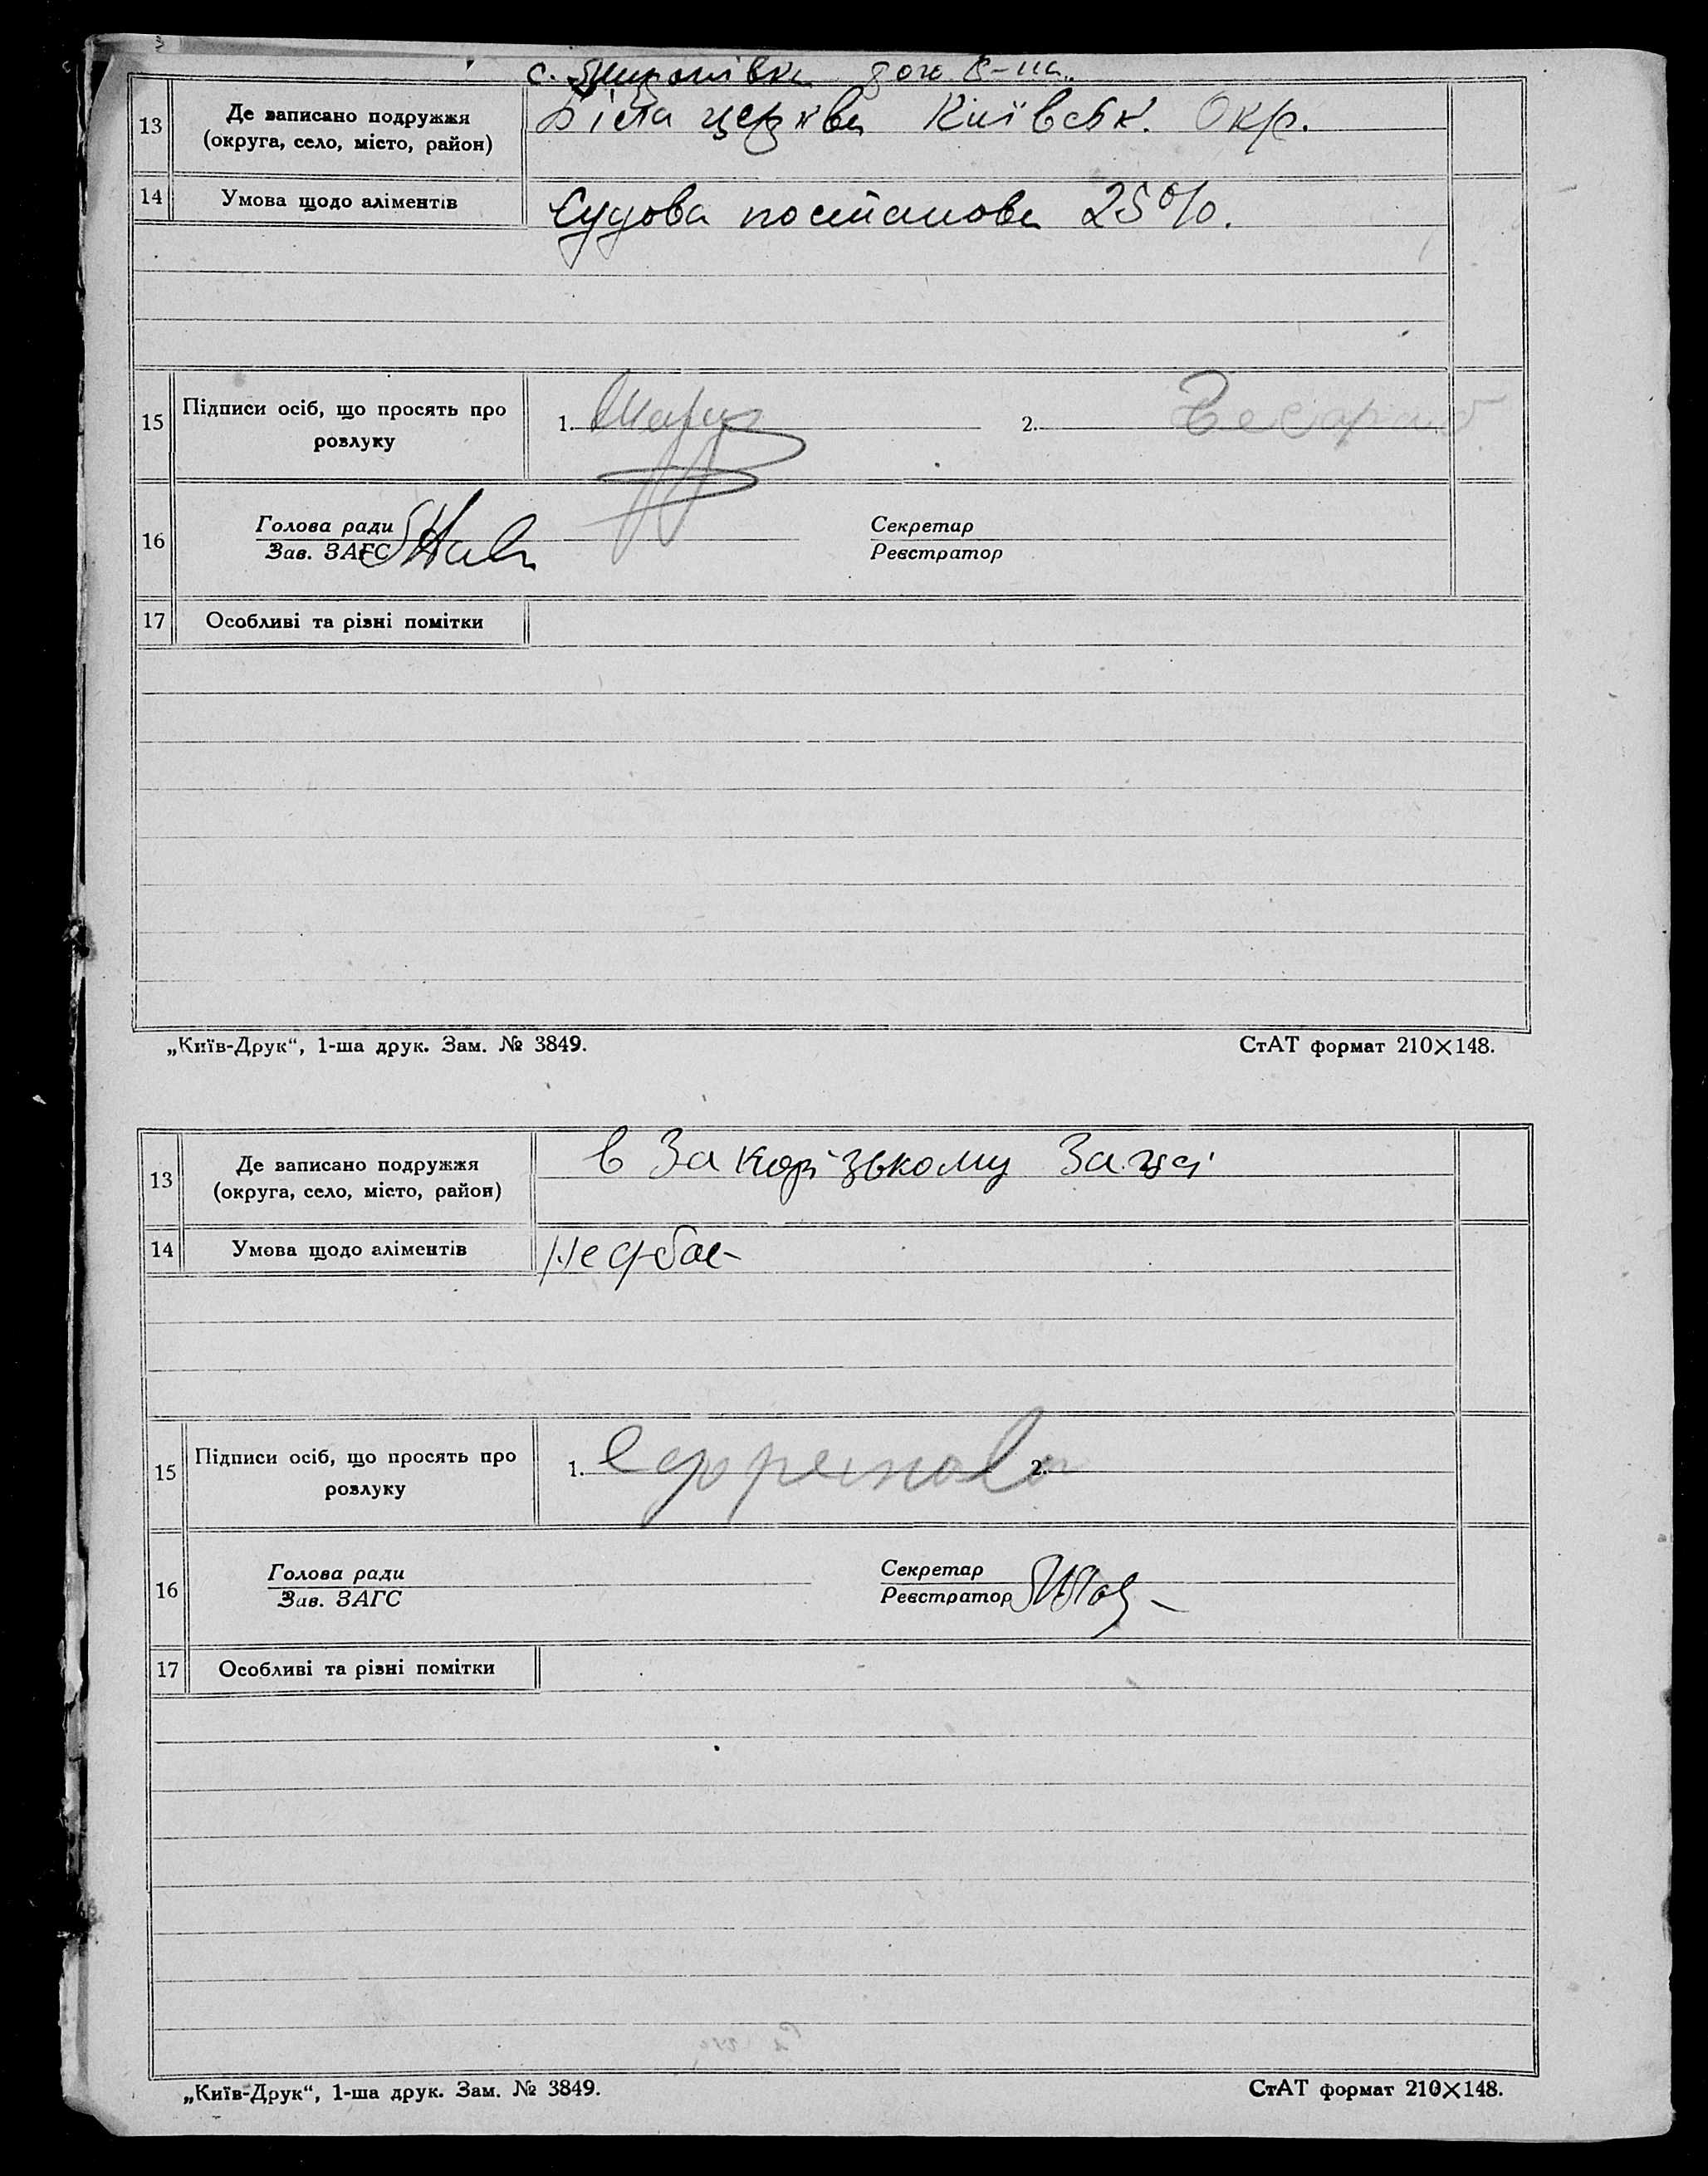 с.
13 Де записано подружжя Біла церква Київськ. Окр.
(округа, село, місто, район)
14 Умова щодо аліментів Судова постанова 25%.
15 Підписи осіб, що просять про 1. 2.
розлуку
16 Голова ради Секретар
Зав. ЗАГС Реєстратор
17 Особливі та різні помітки
„Київ-Друк“, 1-ша друк. Зам. № 3849. СтАТ формат 210×148.
13 Де записано подружжя в
(округа, село, місто, район)
14 Умова щодо аліментів
15 Підписи осіб, що просять про 1. 2.
розлуку
16 Голова ради Секретар
Зав. ЗАГС Реєстратор
17 Особливі та різні помітки
„Київ-Друк“, 1-ша друк. Зам. № 3849. СтАТ формат 210×148.